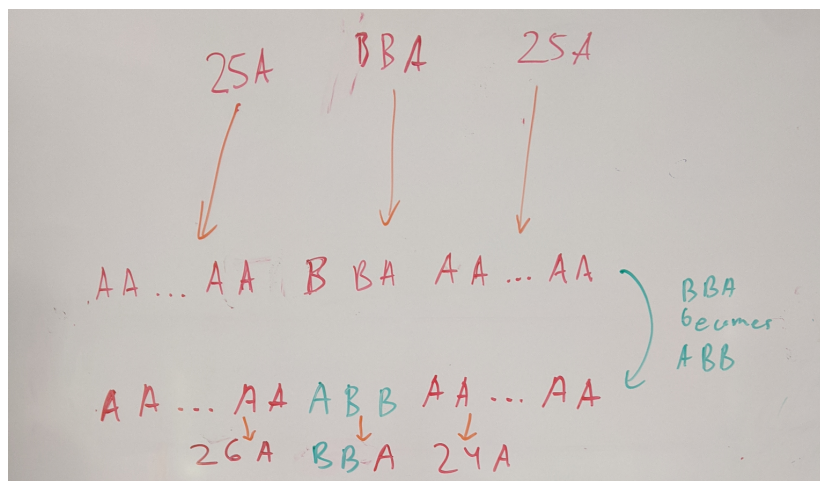 25A BBA 25A
AA... AA B BA AA... AA
BBA
becomes
ABB
AA... AA ABB AA... AA
26A BBA 24A